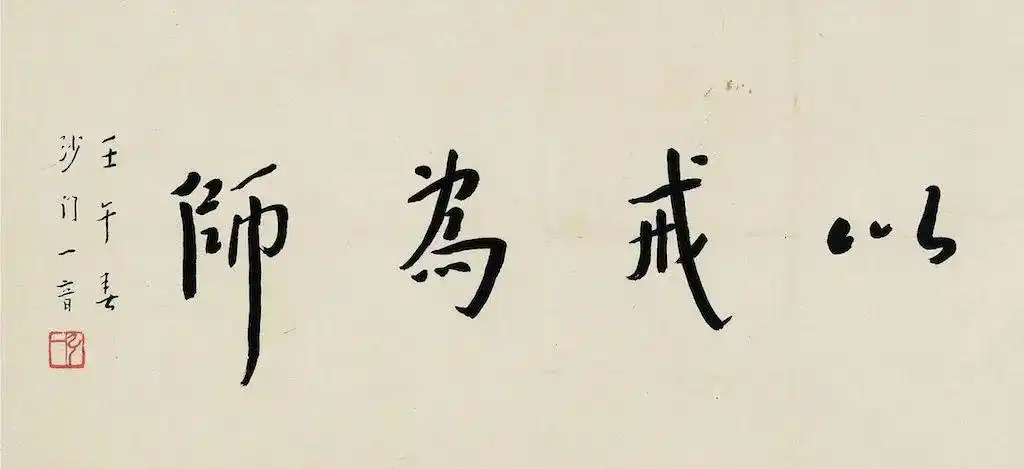 以戒為師
壬午春
沙门一音